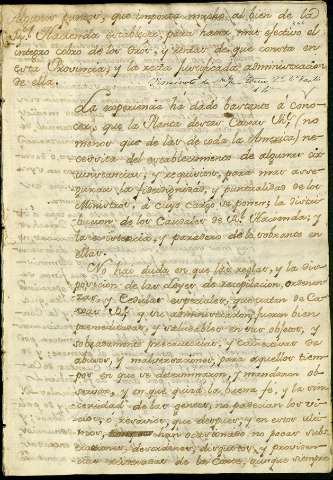 algunos puntos, que importa mucho al bien de la
Rl. Hacienda establecer, para hacer mas efectivo el
integro cobro de los ..., y rentas de que consta en
esta Provincia, y la recta justificada administracion
de ella.
La experiencia ha dado bastante à cono-
cer, que la Planta de estas Caxas Rs. (no
menos que de las de toda la America) ne-
cesita del establecimiento de algunas cir-
cunstancias, y requisitos, para mas asse-
gurar la fidelidad, y puntualidad de los
Ministros, à cuyo cargo se ponen; la distri-
bucion de los Caudales de Rl. Hacienda, y
la existencia, y paradero de lo sobrante en
ellas.
No hai duda en que las reglas, y la dis-
posicion de las Leyes de recopilacion, ordenan-
zas, y Cedulas especiales, que tratan de Ca-
xas Rs. y su administracion, fueron bien
premeditadas, y saludables en sus objetos, y
sobradamente precautivas, y de
abusos, y malversaciones, para aquellos tiem-
pos en que se determinaron, y mandaron ob-
servar, y en que quizà la buena fe, y la sin-
ceridad de las gentes, no padecian los vi-
cios, que despues, y en estos ulti-
mos, han ocasionado no pocas subs-
tracciones, desordenes, disgustos, y
de la Corte, aunque siempre